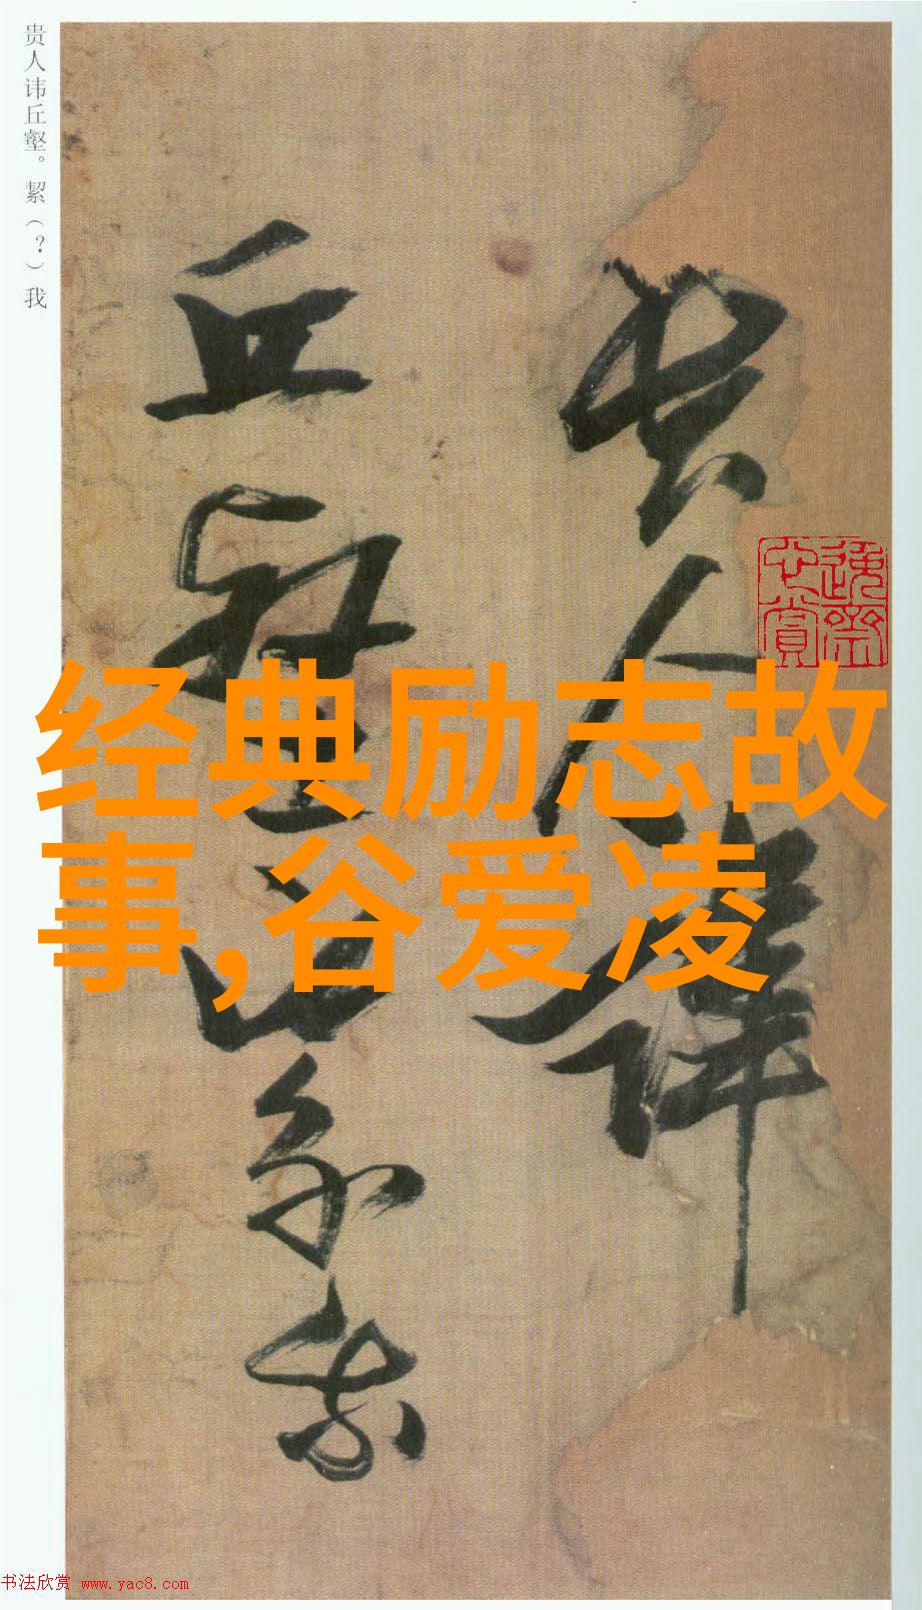 贵人讳丘壑。絜（？）我
贵人讳
丘壑
絜我
经典励志故
事,谷爱凌
书法欣赏 www.yac8.com